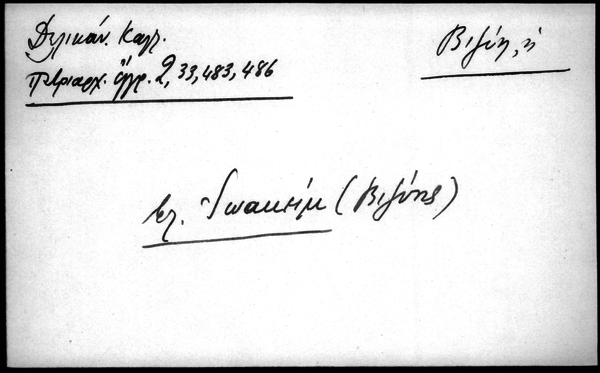 Δελικάν. Καλ.
Πατριαρχ. ἔγγρ. 2, 33, 483, 486
Βιζύη, ἡ
βλ. Ἰωακείμ (Βιζύης)